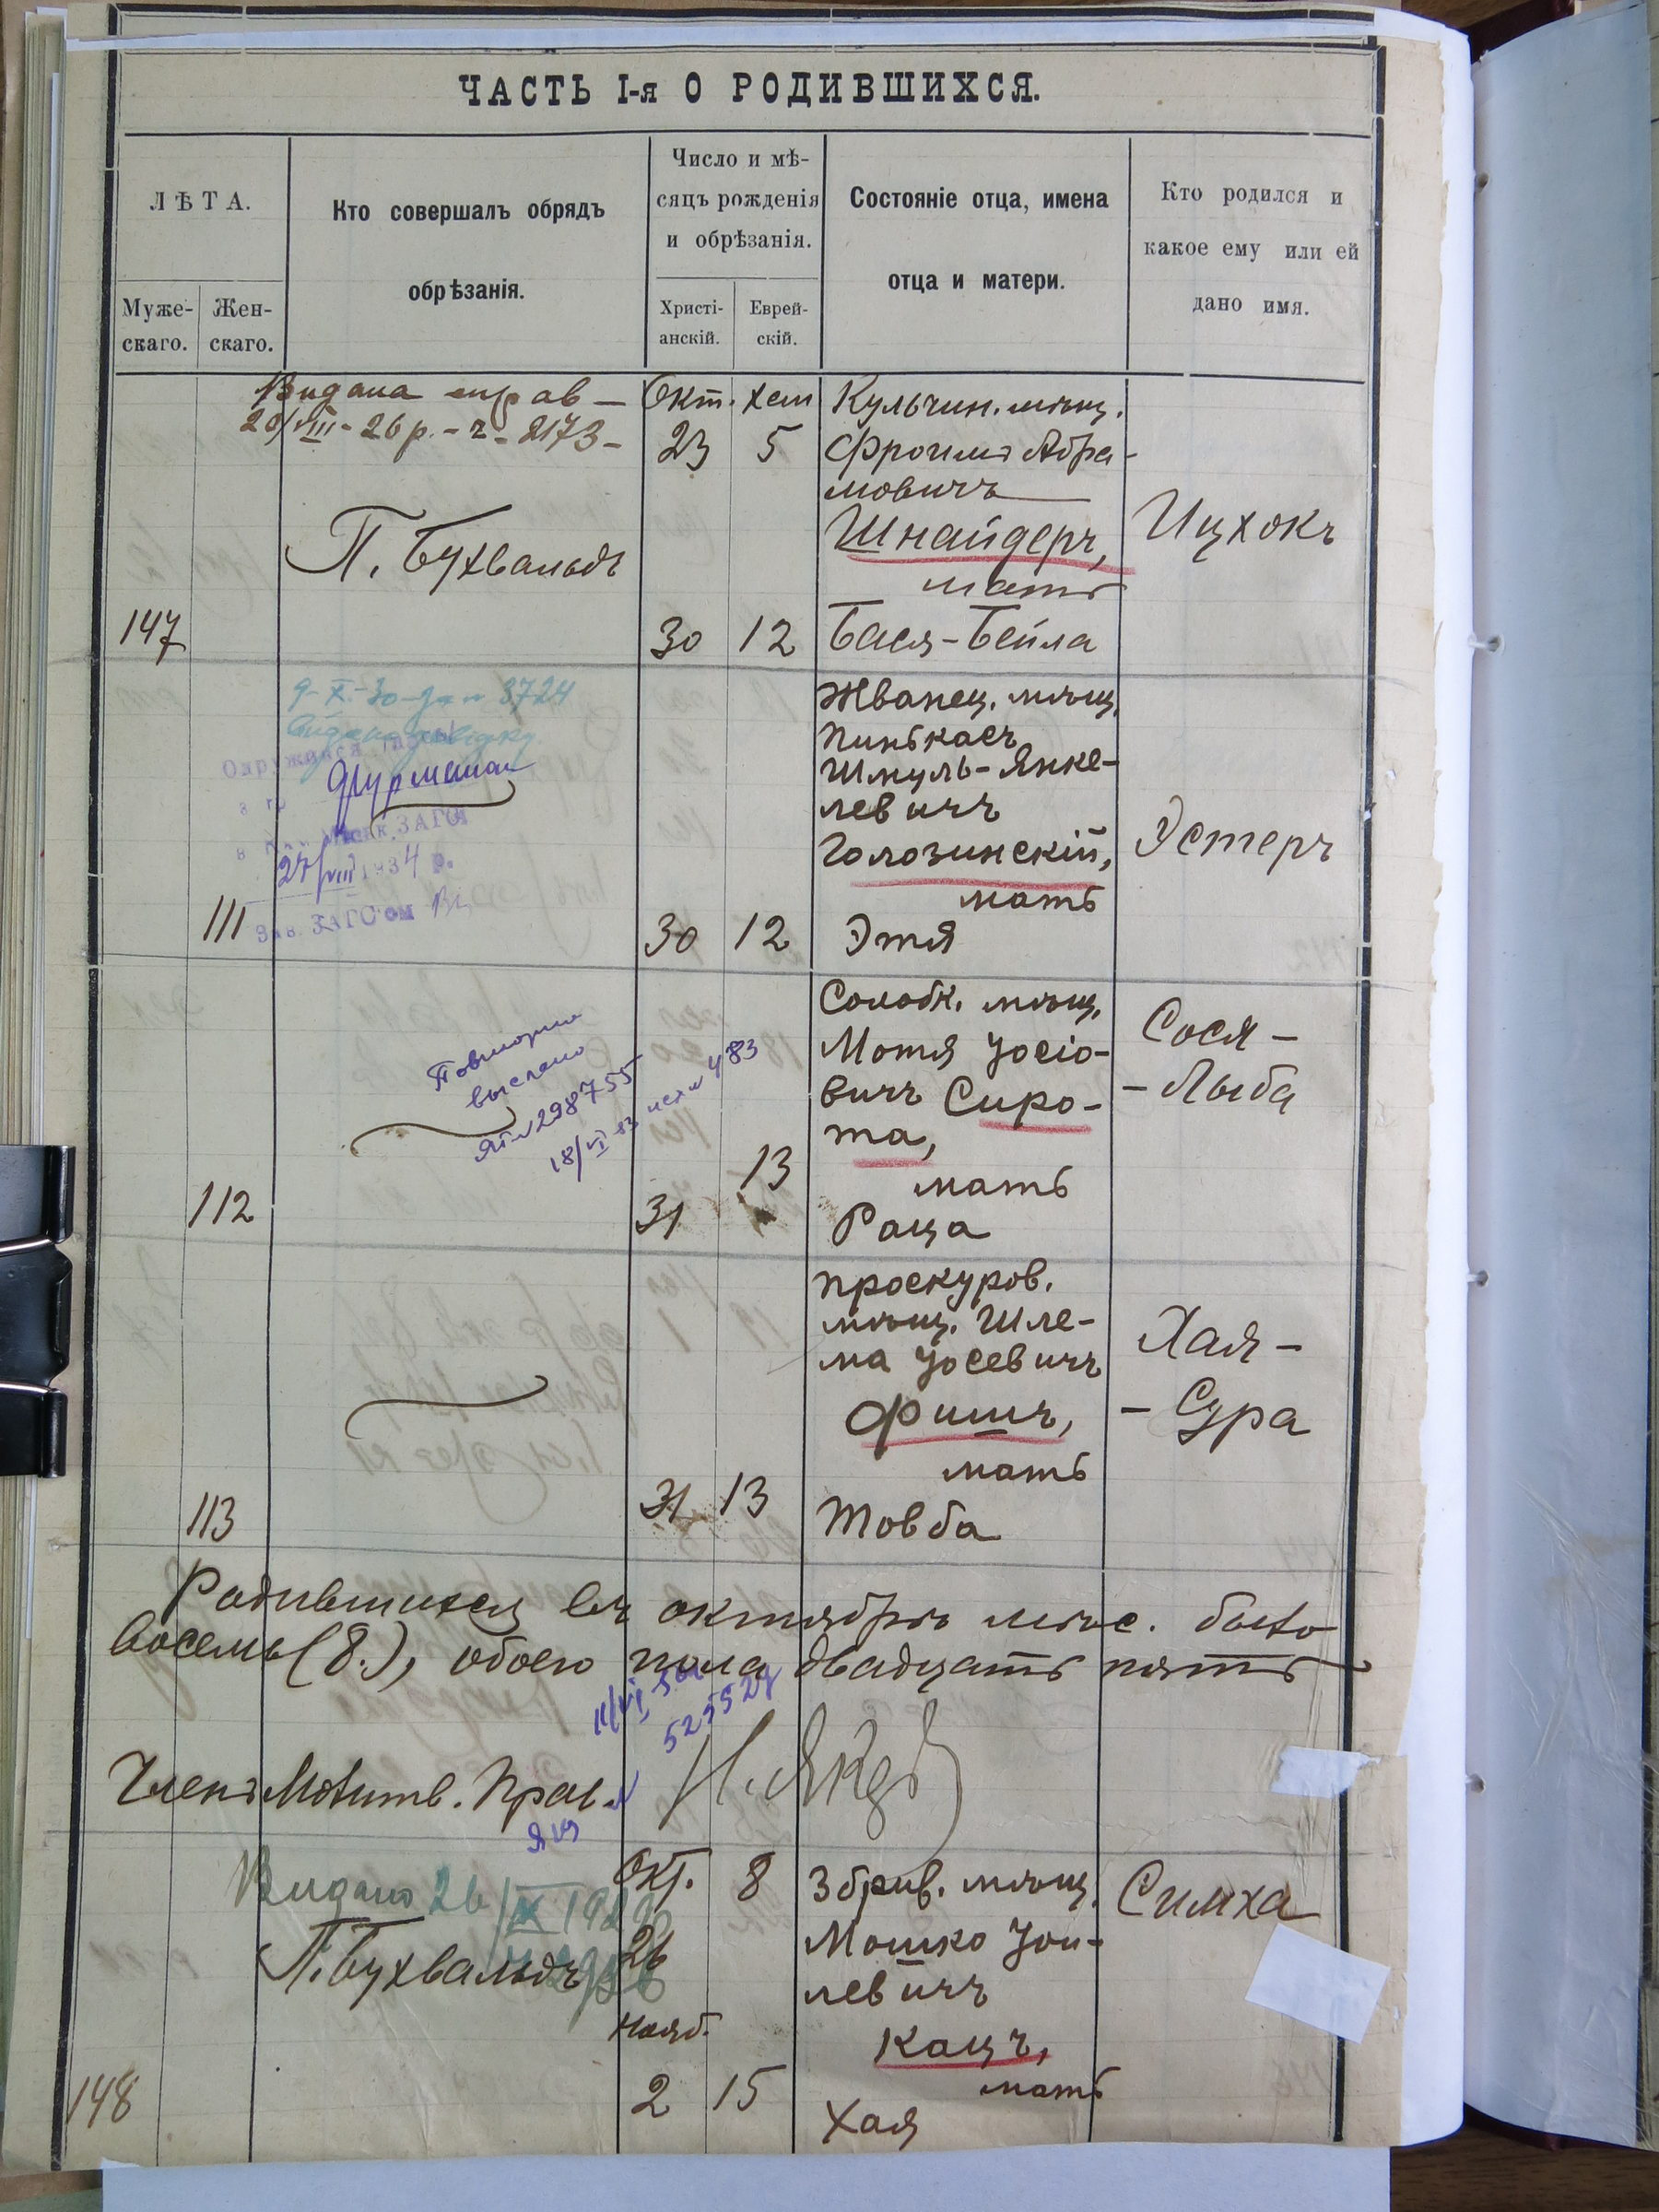 ЧАСТЬ I-я О РОДИВШИХСЯ.
ЛѢТА.
Муже-
скаго.
Жен-
скаго.
Кто совершалъ обрядъ
обрѣзанія.
Число и мѣ-
сяцъ рожденія
и обрѣзанія.
Христі-
анскій.
Еврей-
скій.
Состояніе отца, имена
отца и матери.
Кто родился и
какое ему или ей
дано имя.
Видана справ-
20/VIII-26 р.-ч-2173-
Окт. хеш
23 5
Кульчин. мѣщ.
Фроимъ Абра-
мовичъ
Шнайдеръ,
мать
Бася-Бейла
Ицхокъ
П. Бухвальдъ
147
30 12
9-X-30 3724
Фурман
ЗАГС
27/VIII 1934 р.
Зав. ЗАГС'ом
111
30 12
Жванец. мѣщ.
Пинькасъ
Шмуль-Янке-
левичъ
Голозинскій,
мать
Этя
Эстеръ
Повторно
выслано
ЯТ № 298755
18/VI 483
112
31 13
Солобк. мѣщ.
Мотя Іосіо-
вичъ Сиро-
та,
мать
Раца
Сося-
-Лыба
113
31 13
Проскуров.
мѣщ. Шле-
ма Іосевичъ
Фишъ,
мать
Товба
Хая-
-Сура
Родившихся въ октябрѣ мѣс. было
восемь (8.), обоего пола двадцать пять
11/VI
525529
Членъ Молитв. Прав.
Видано 26/IX 192
П. Бухвальдъ
Окт. 8
26
Нояб.
2 15
148
Збрив. мѣщ.
Мошко Іои-
левичъ
Кацъ,
мать
Хая
Симха